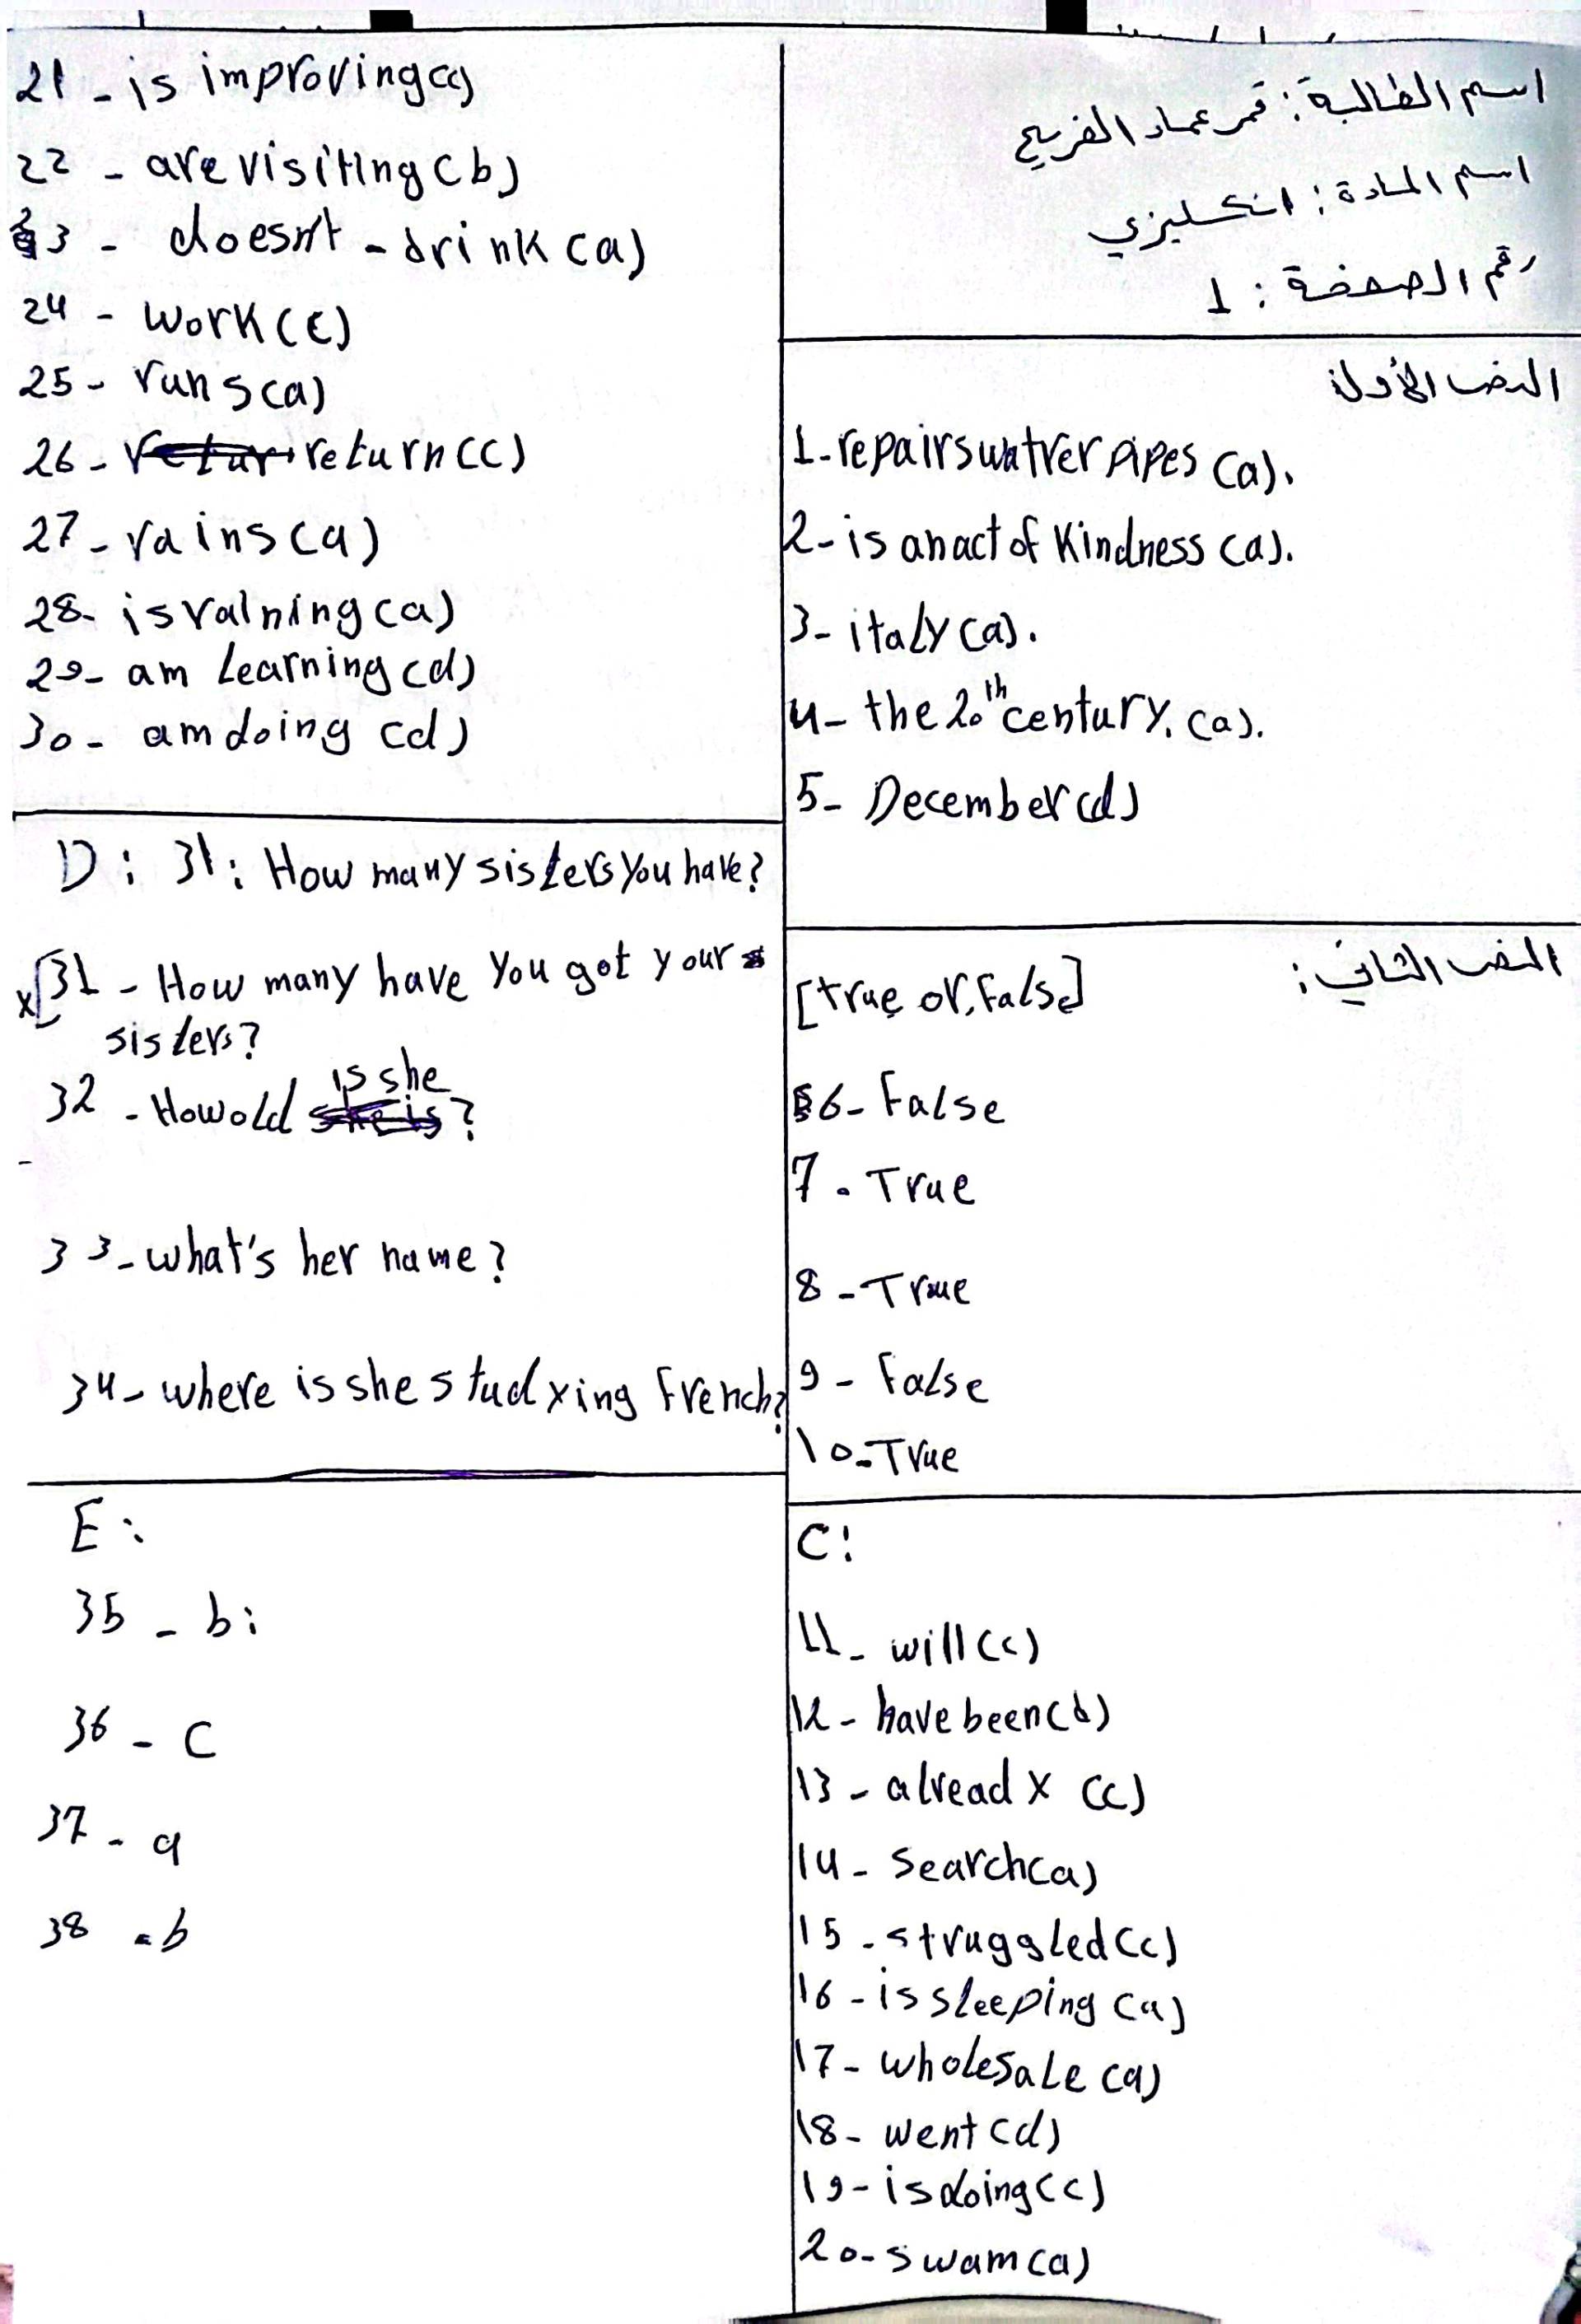 اسم الطالبة: قمر عماد الفريح
اسم المادة: انكليزي
رقم الصفحة: 1
النص الأول:
1-repairs watrer pipes (a).
2-is an act of Kindness (a).
3-italy (a).
4-the 20th century. (a).
5-December (d)
النص الثاني:
[true or, False]
6-False
7-True
8-True
9-False
10-True
C:
11-will (c)
12-have been (d)
13-alread x (c)
14-Search (a)
15-struggled (c)
16-is sleeping (a)
17-wholesale (a)
18-went (d)
19-is doing (c)
20-swam (a)
21-is improving (c)
22-are visiting (b)
23-doesn't-drink (a)
24-work (c)
25-runs (a)
26-return (c)
27-rains (a)
28-is ralning (a)
29-am Learning (d)
30-am doing (d)
D: 31: How many sisters you have?
x[31-How many have you got your
sisters?
32-How old is she?
33-what's her name?
34-where is she studxing French?
E:
35-b:
36-c
37-a
38-b